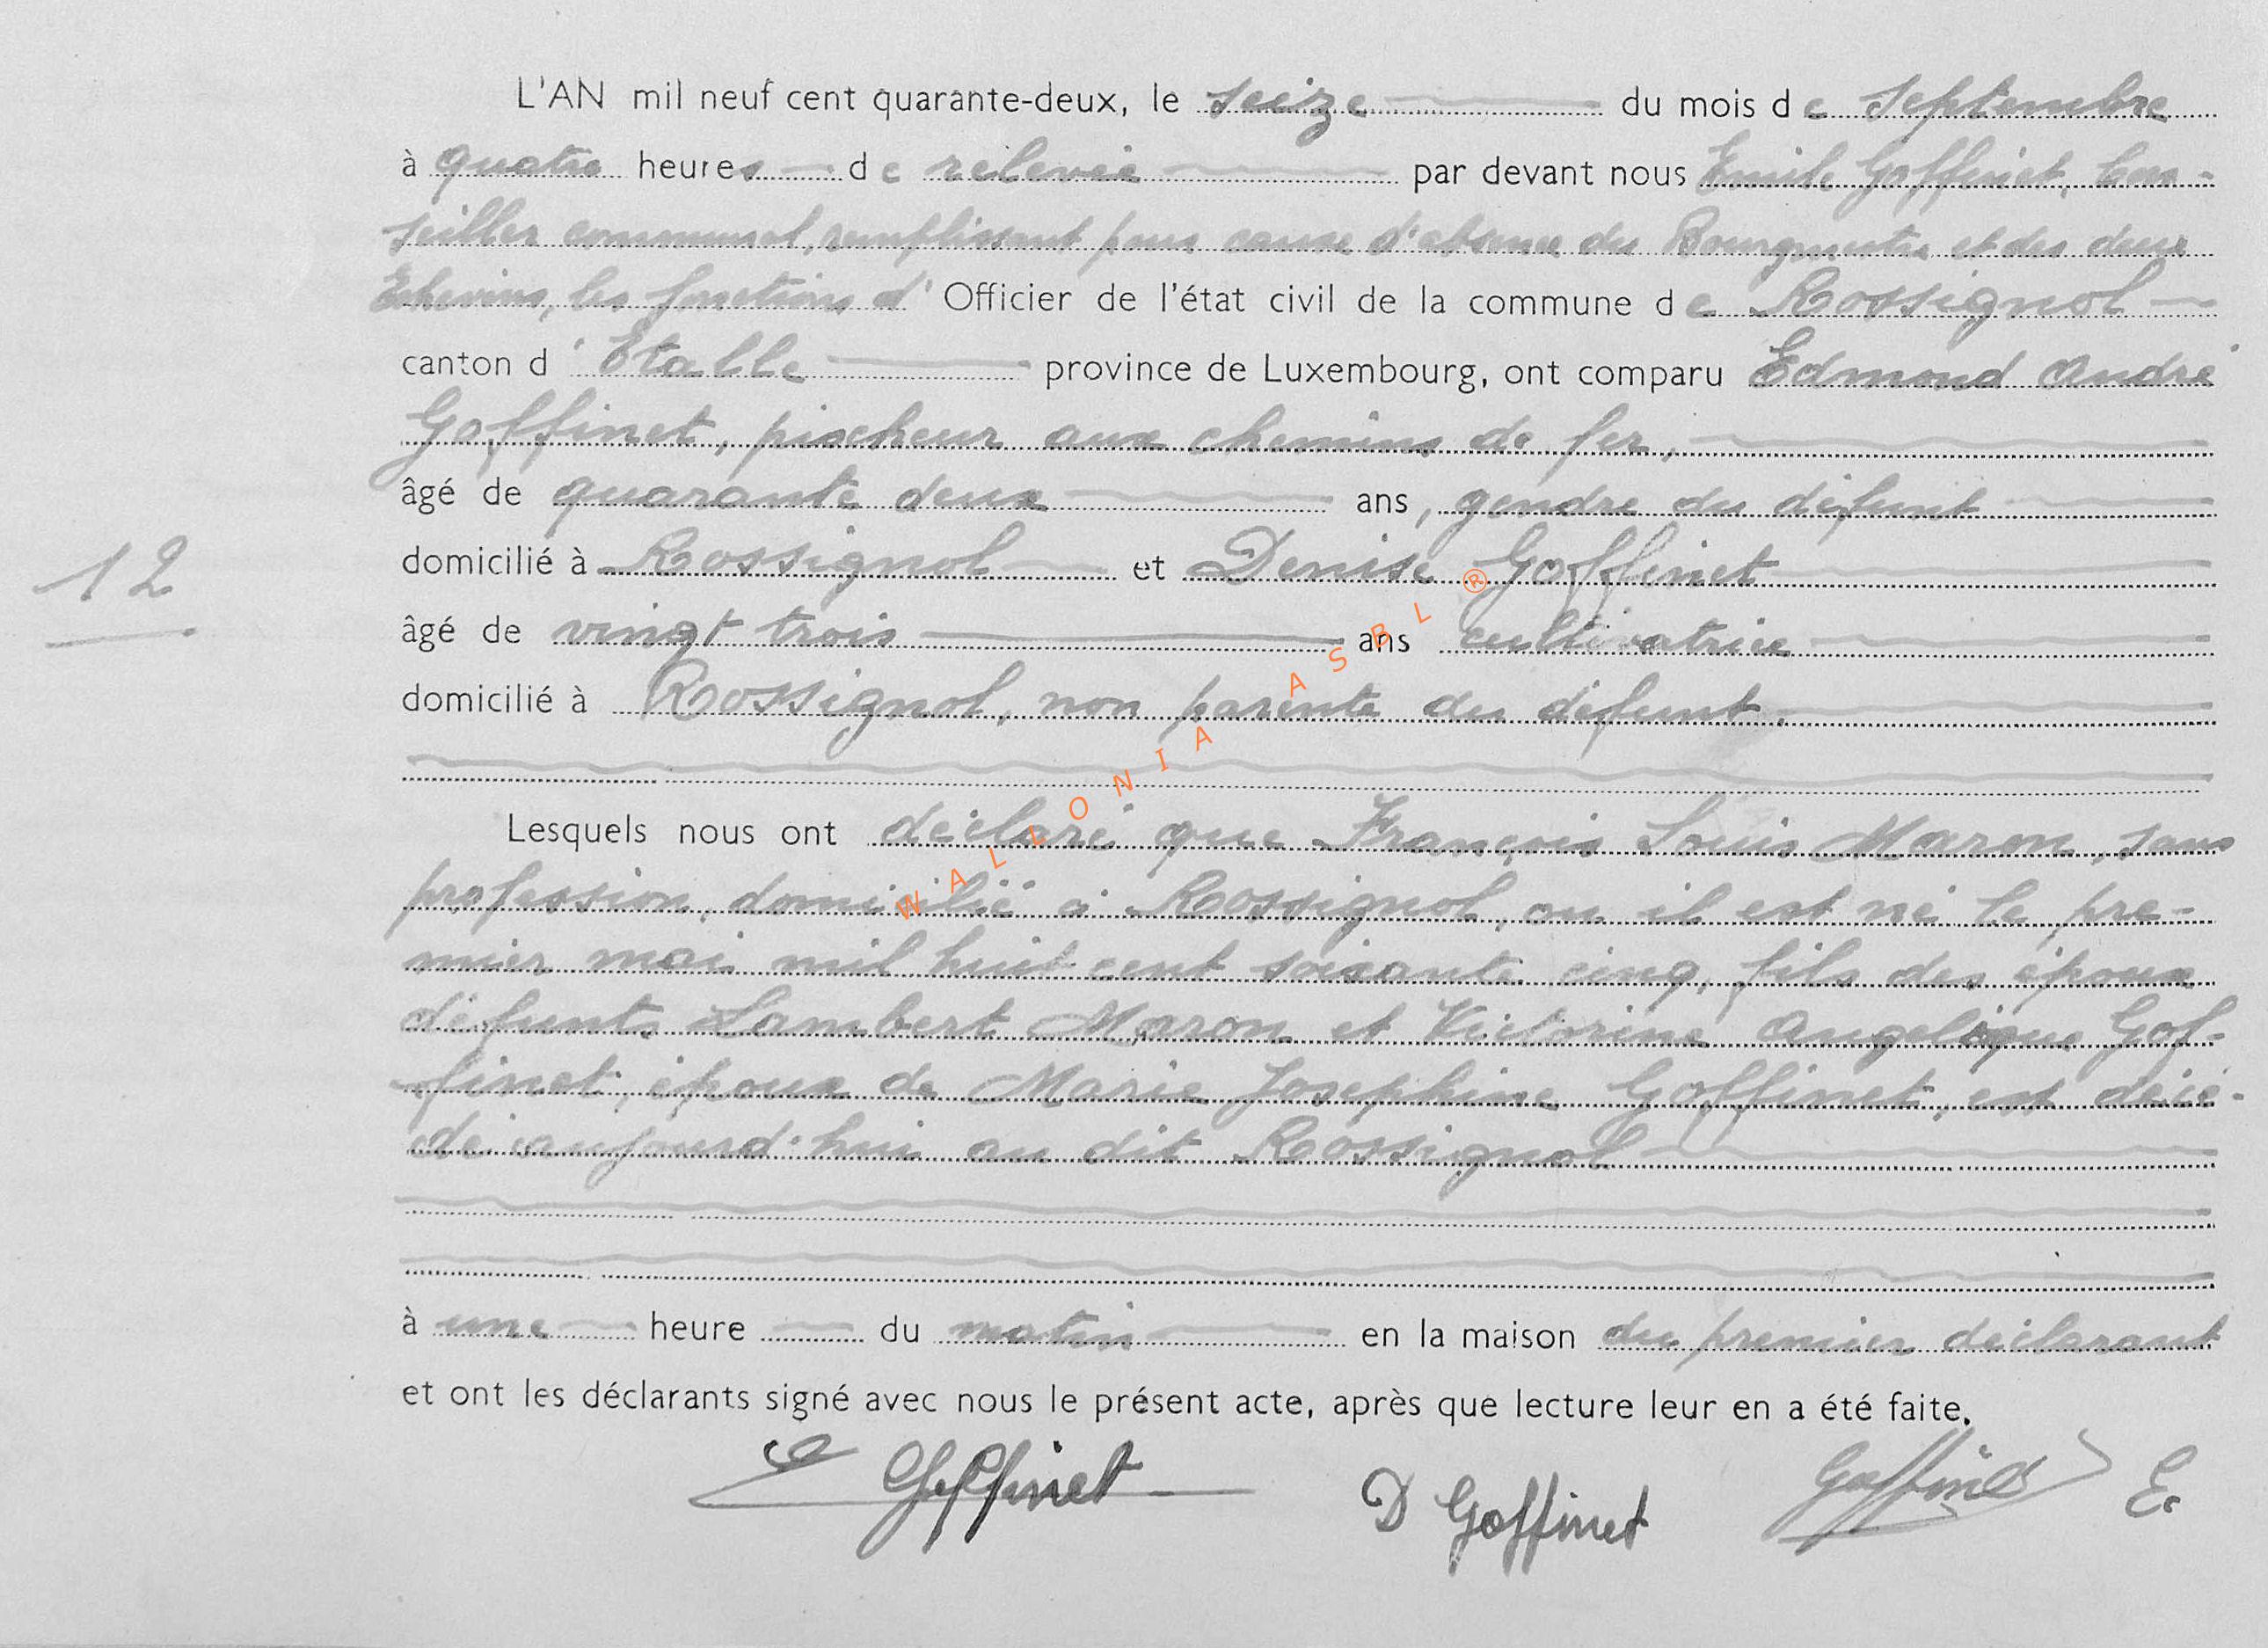 L'AN mil neuf cent quarante-deux, le seize du mois de Septembre
à quatre heures de relevée par devant nous Emile Goffinet, Con-
seiller communal, remplissant pour cause d'absence du Bourgmestre et des deux
Echevins, les fonctions d' Officier de l'état civil de la commune de Rossignol
canton d' Etalle province de Luxembourg, ont comparu Edmond André
Goffinet, piocheur aux chemins de fer,
âgé de quarante deux ans, gendre du défunt
domicilié à Rossignol et Denise Goffinet
12
âgé de vingt trois ans cultivatrice
domicilié à Rossignol, non parente du défunt.
Lesquels nous ont déclaré que François Louis Maron, sans
profession, domicilié à Rossignol, ou il est né le pre-
mier mai mil huit cent soixante cinq, fils des époux
défunts Lambert Maron et Victorine Angelique Gof-
finet, époux de Marie Josephine Goffinet, est décé-
dé aujourd'hui au dit Rossignol
à une heure du matin en la maison du premier déclarant
et ont les déclarants signé avec nous le présent acte, après que lecture leur en a été faite.
Goffinet D Goffinet Goffinet E.
WALLONIA ASBL ®